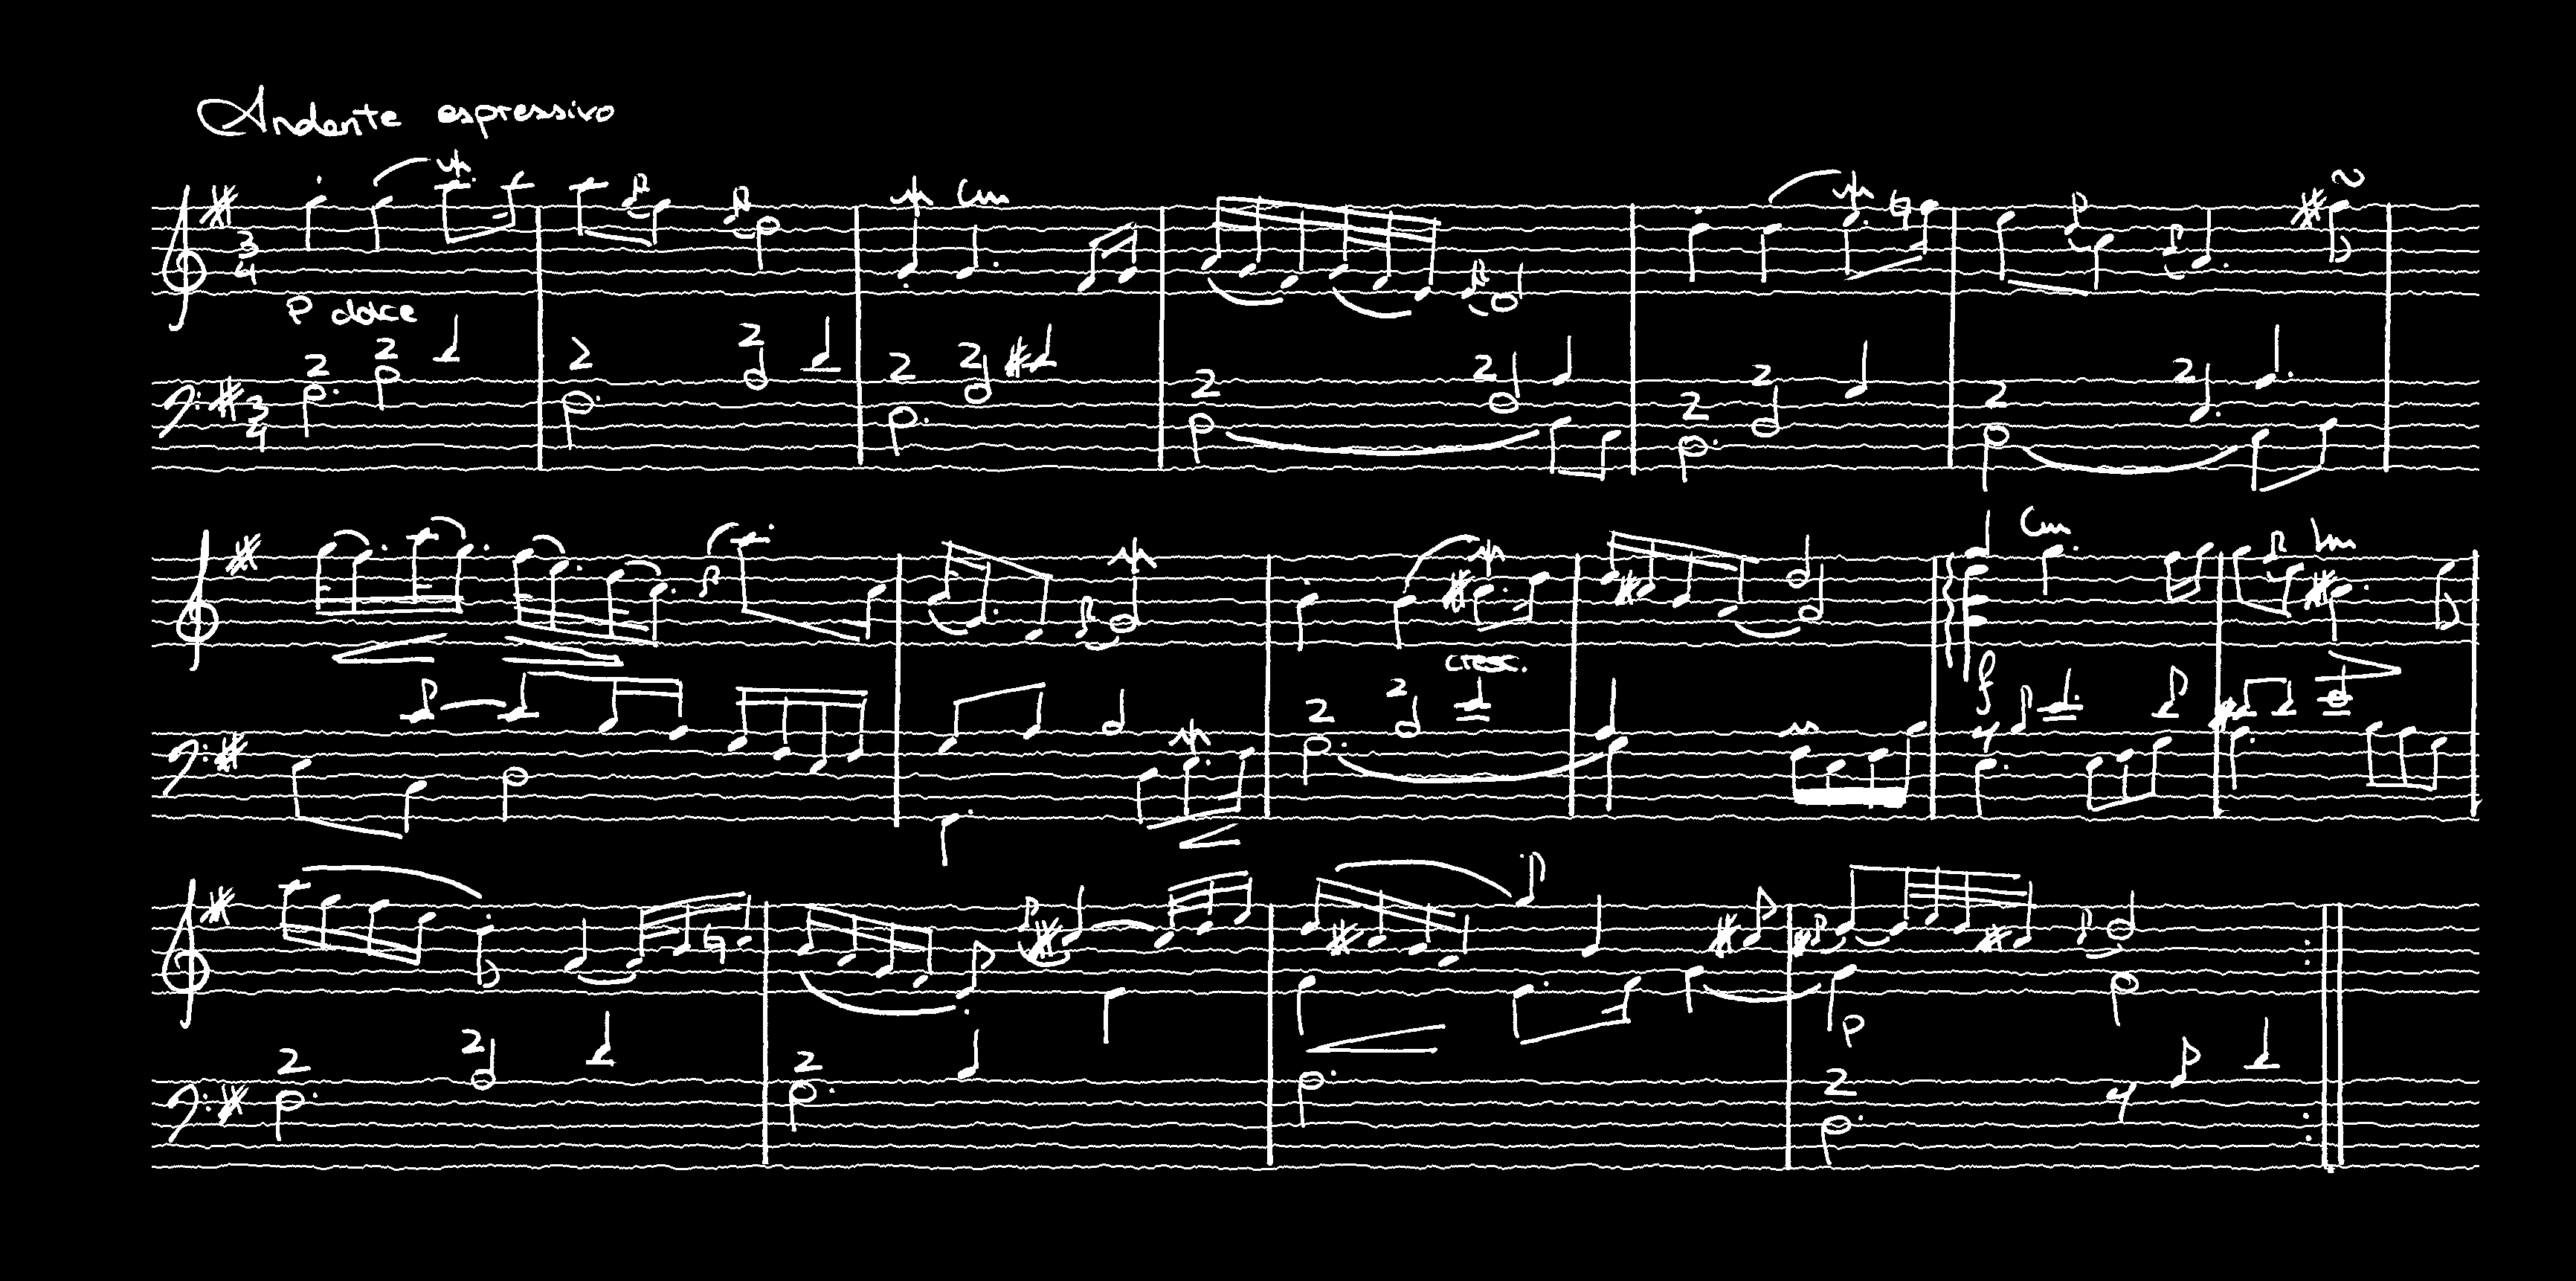 Andante espressivo
3
4
P dolce
3
4
cresc.
f
p